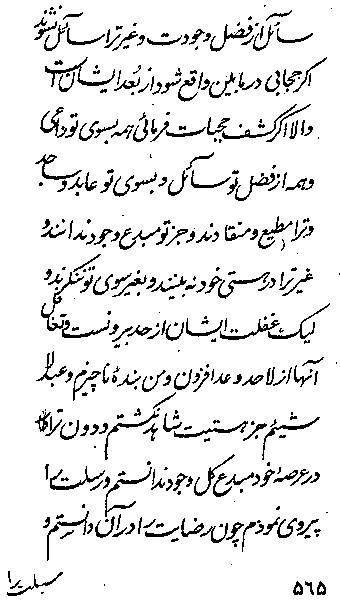 سائل از فضل وجودت و غیر ترا سائل نشوند
اگر حجابی در مابین واقع شود از بُعد ایشان است
والا اگر کشف حجبات فرمائی همه بسوی تو داعی
و همه از فضل تو سائل و بسوی تو عابد و ساجد
و ترا مطیع و منقادند و جز تو مبدع وجود ندانند و
غیر ترا در هستی خود نه بینند و بغیر سوی تو ننگرند و
لیک غفلت ایشان از حد بیرونست و تغافل
آنها از لاحد و عد افزون و من بندۀ ناچیزم و عبد لا
شیئم جز هستیت شاهد نگشتم و دون ترا
در عرصۀ خود مبدع کل وجود ندانستم و رسلت را
پیروی نمودم چون رضایت را در آن دانستم و
سبلت را
٥٦٥